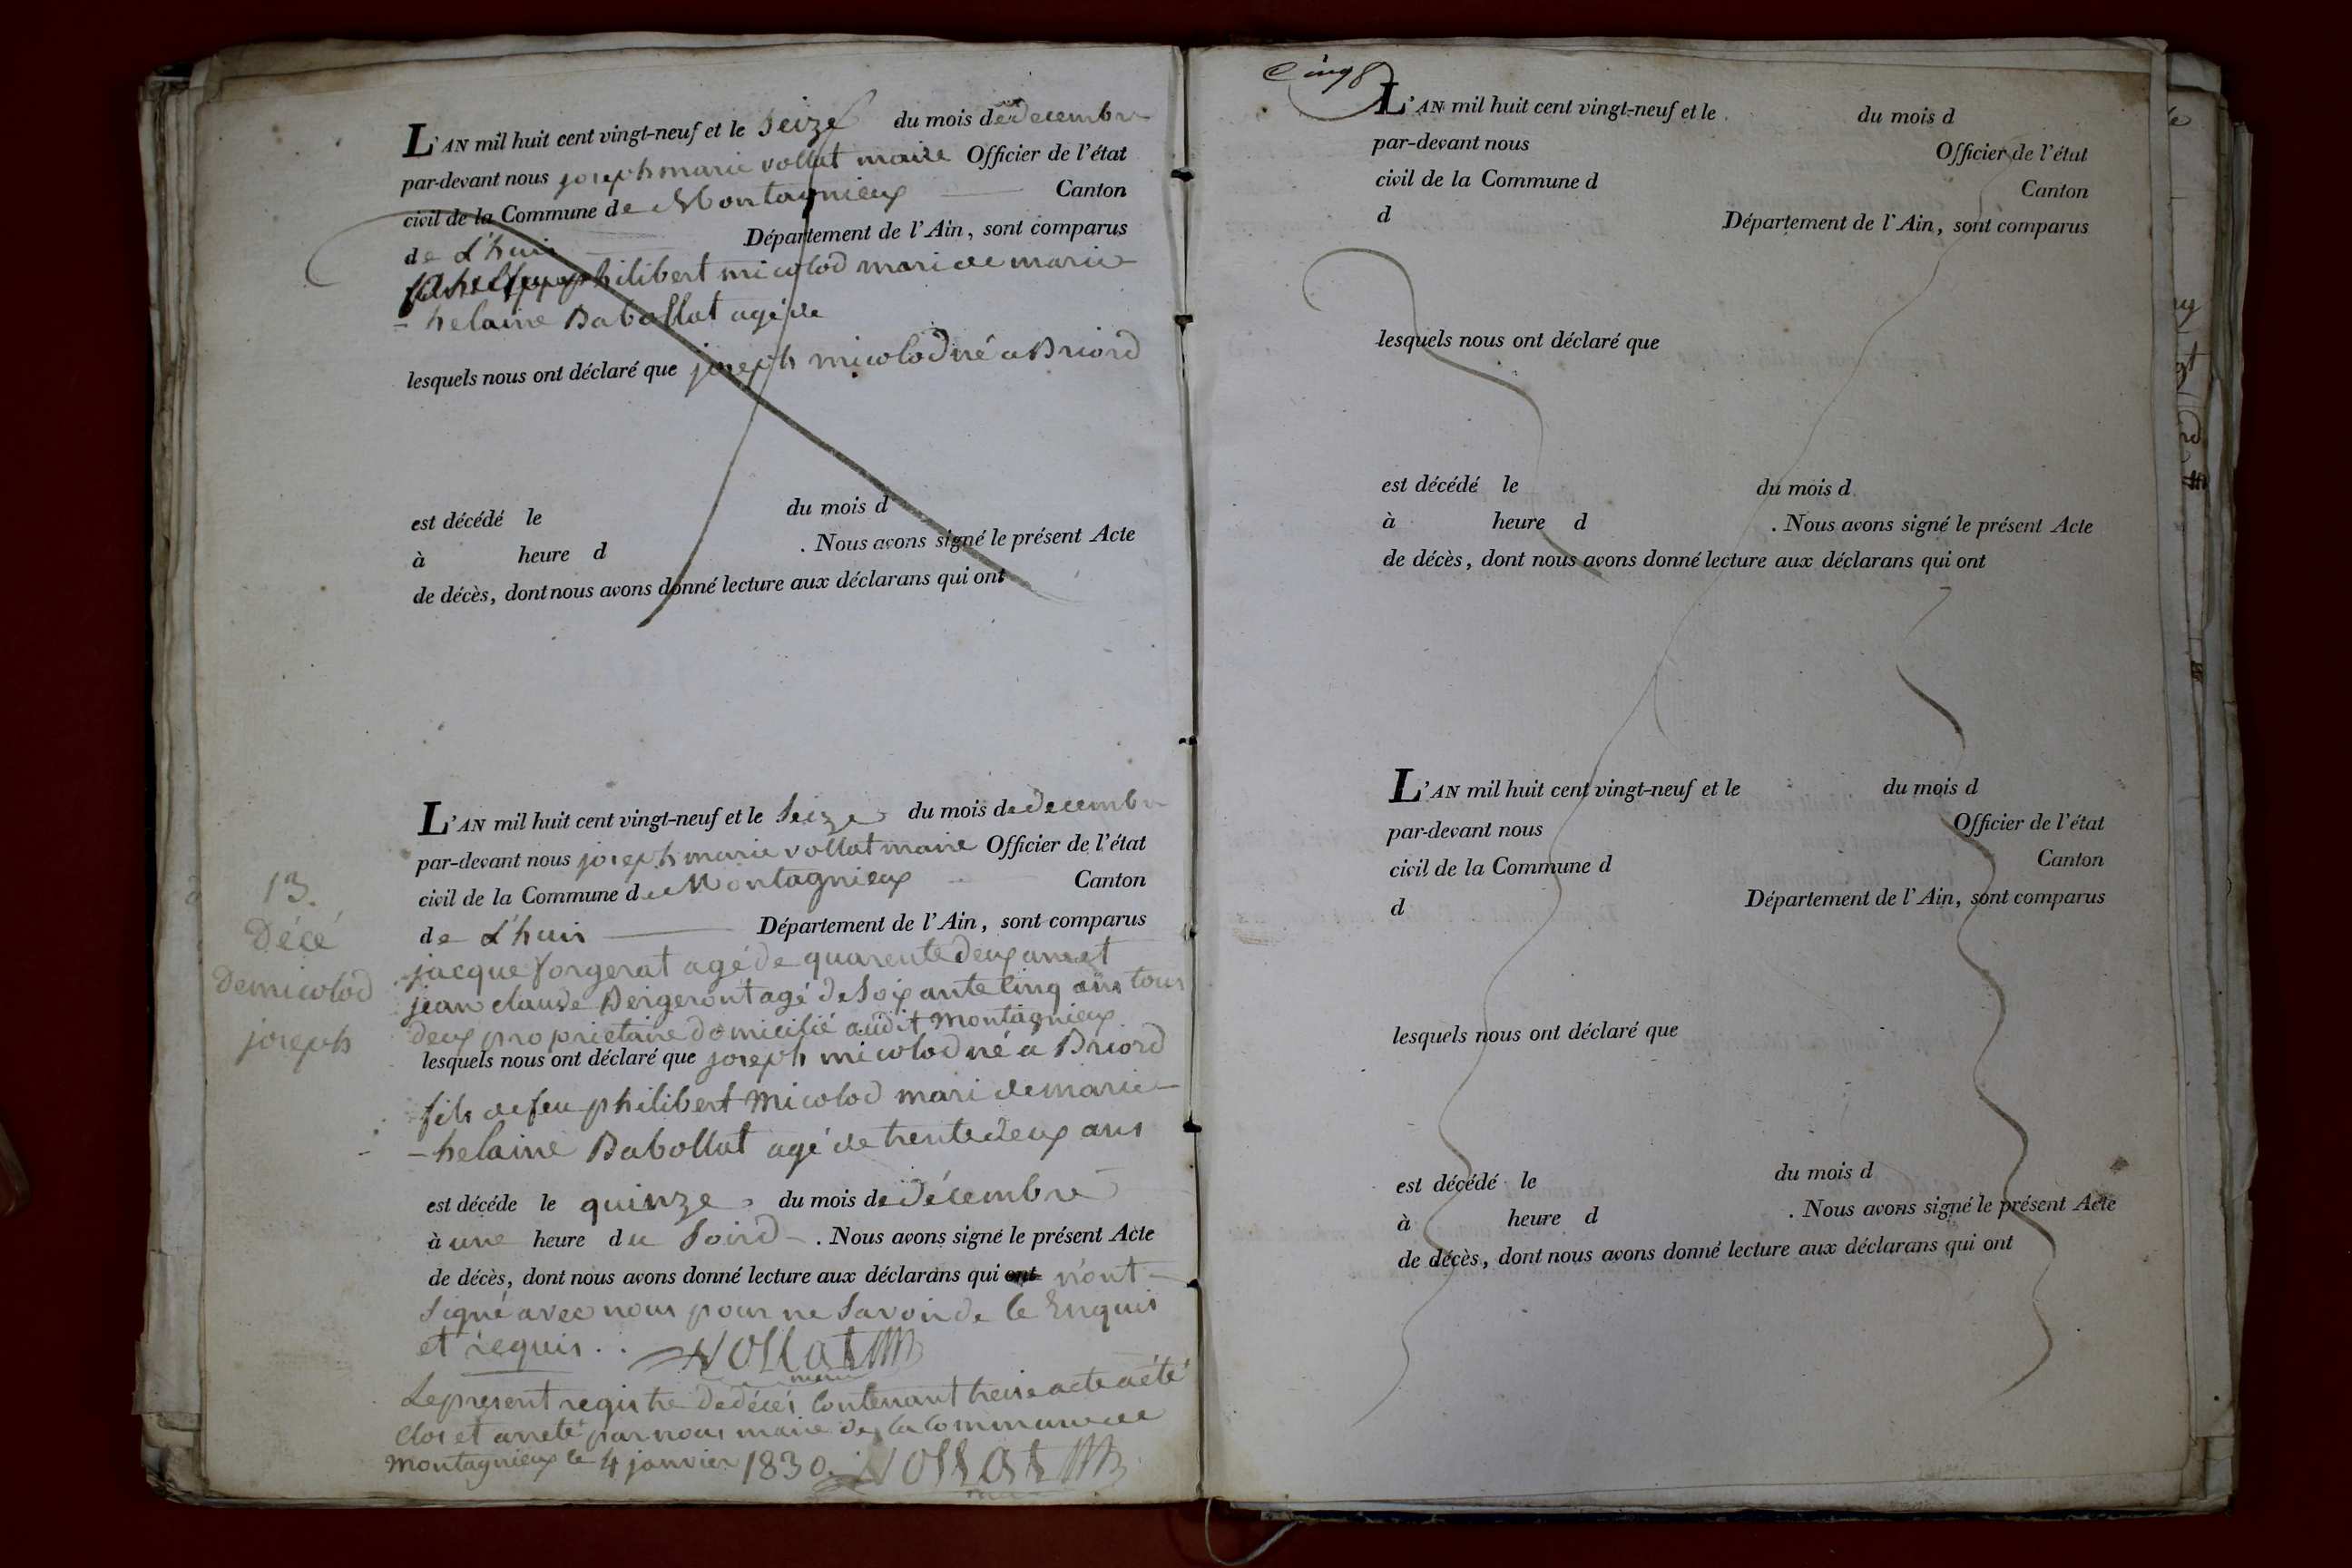 L'AN mil huit cent vingt-neuf et le Seize du mois de decembre
par-devant nous joseph marie vollat maire Officier de l'état
civil de la Commune de Montagnieux Canton
de L'huis Département de l'Ain, sont comparus
philibert micolod mari de marie
- helaine Babollat agé de
lesquels nous ont déclaré que joseph micolod né a Briord
est décédé le du mois d
à heure d . Nous avons signé le présent Acte
de décès, dont nous avons donné lecture aux déclarans qui ont
13.
Décé
De micolod
joseph
L'AN mil huit cent vingt-neuf et le Seize du mois de decembre
par-devant nous joseph marie vollat maire Officier de l'état
civil de la Commune de Montagnieux Canton
de L'huis Département de l'Ain, sont comparus
jacque forgerat agé de quarente deux ans et
jean claude Bergeront agé de Soixante cinq ans tous
deux proprietaire domicilié audit Montagnieux
lesquels nous ont déclaré que joseph micolod né a Briord
fils de feu philibert Micolod mari de marie
- helaine Babollat agé de trente deux ans
est décéde le quinze du mois de décembre
à une heure du Soird . Nous avons signé le présent Acte
de décès, dont nous avons donné lecture aux déclarans qui ont n'ont
Signé avec nous pour ne Savoir de le Enquis
et requis . . Vollat
maire
Le present registre de décés Contenant treise acte a été
Clos et arreté par nous maire de la Commune de
Montagnieux le 4 janvier 1830. Vollat
Cinq
L'AN mil huit cent vingt-neuf et le du mois d
par-devant nous Officier de l'état
civil de la Commune d Canton
d Département de l'Ain, sont comparus
lesquels nous ont déclaré que
est décédé le du mois d
à heure d . Nous avons signé le présent Acte
de décès, dont nous avons donné lecture aux déclarans qui ont
L'AN mil huit cent vingt-neuf et le du mois d
par-devant nous Officier de l'état
civil de la Commune d Canton
d Département de l'Ain, sont comparus
lesquels nous ont déclaré que
est décédé le du mois d
à heure d . Nous avons signé le présent Acte
de décès, dont nous avons donné lecture aux déclarans qui ont